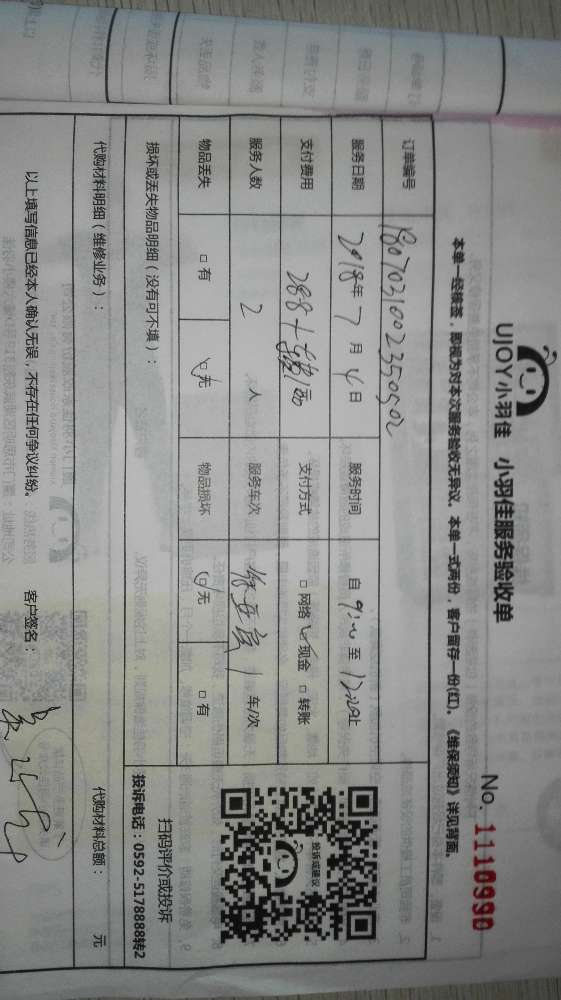 UJOY小羽佳 小羽佳服务验收单
No. 1110990
本单一经接签，即视为对本次服务验收无异议。本单一式两份，客户留存一份(红)。《维保须知》详见背面。
订单编号 180703100235050502
服务日期 2018年7月4日 服务时间 自 9:00 至 12:00止
支付费用 288+ 支付方式 □网络 ☑现金 □转账
服务人数 2 人 服务车次 1 车/次
物品丢失 □有 ☑无 物品损坏 ☑无 □有
投诉或建议
扫码评价或投诉
投诉电话：0592-5178888转2
损坏或丢失物品明细（没有可不填）：
代购材料明细（维修业务）： 代购材料总额： 元
以上填写信息已经本人确认无误，不存在任何争议纠纷。 客户签名：